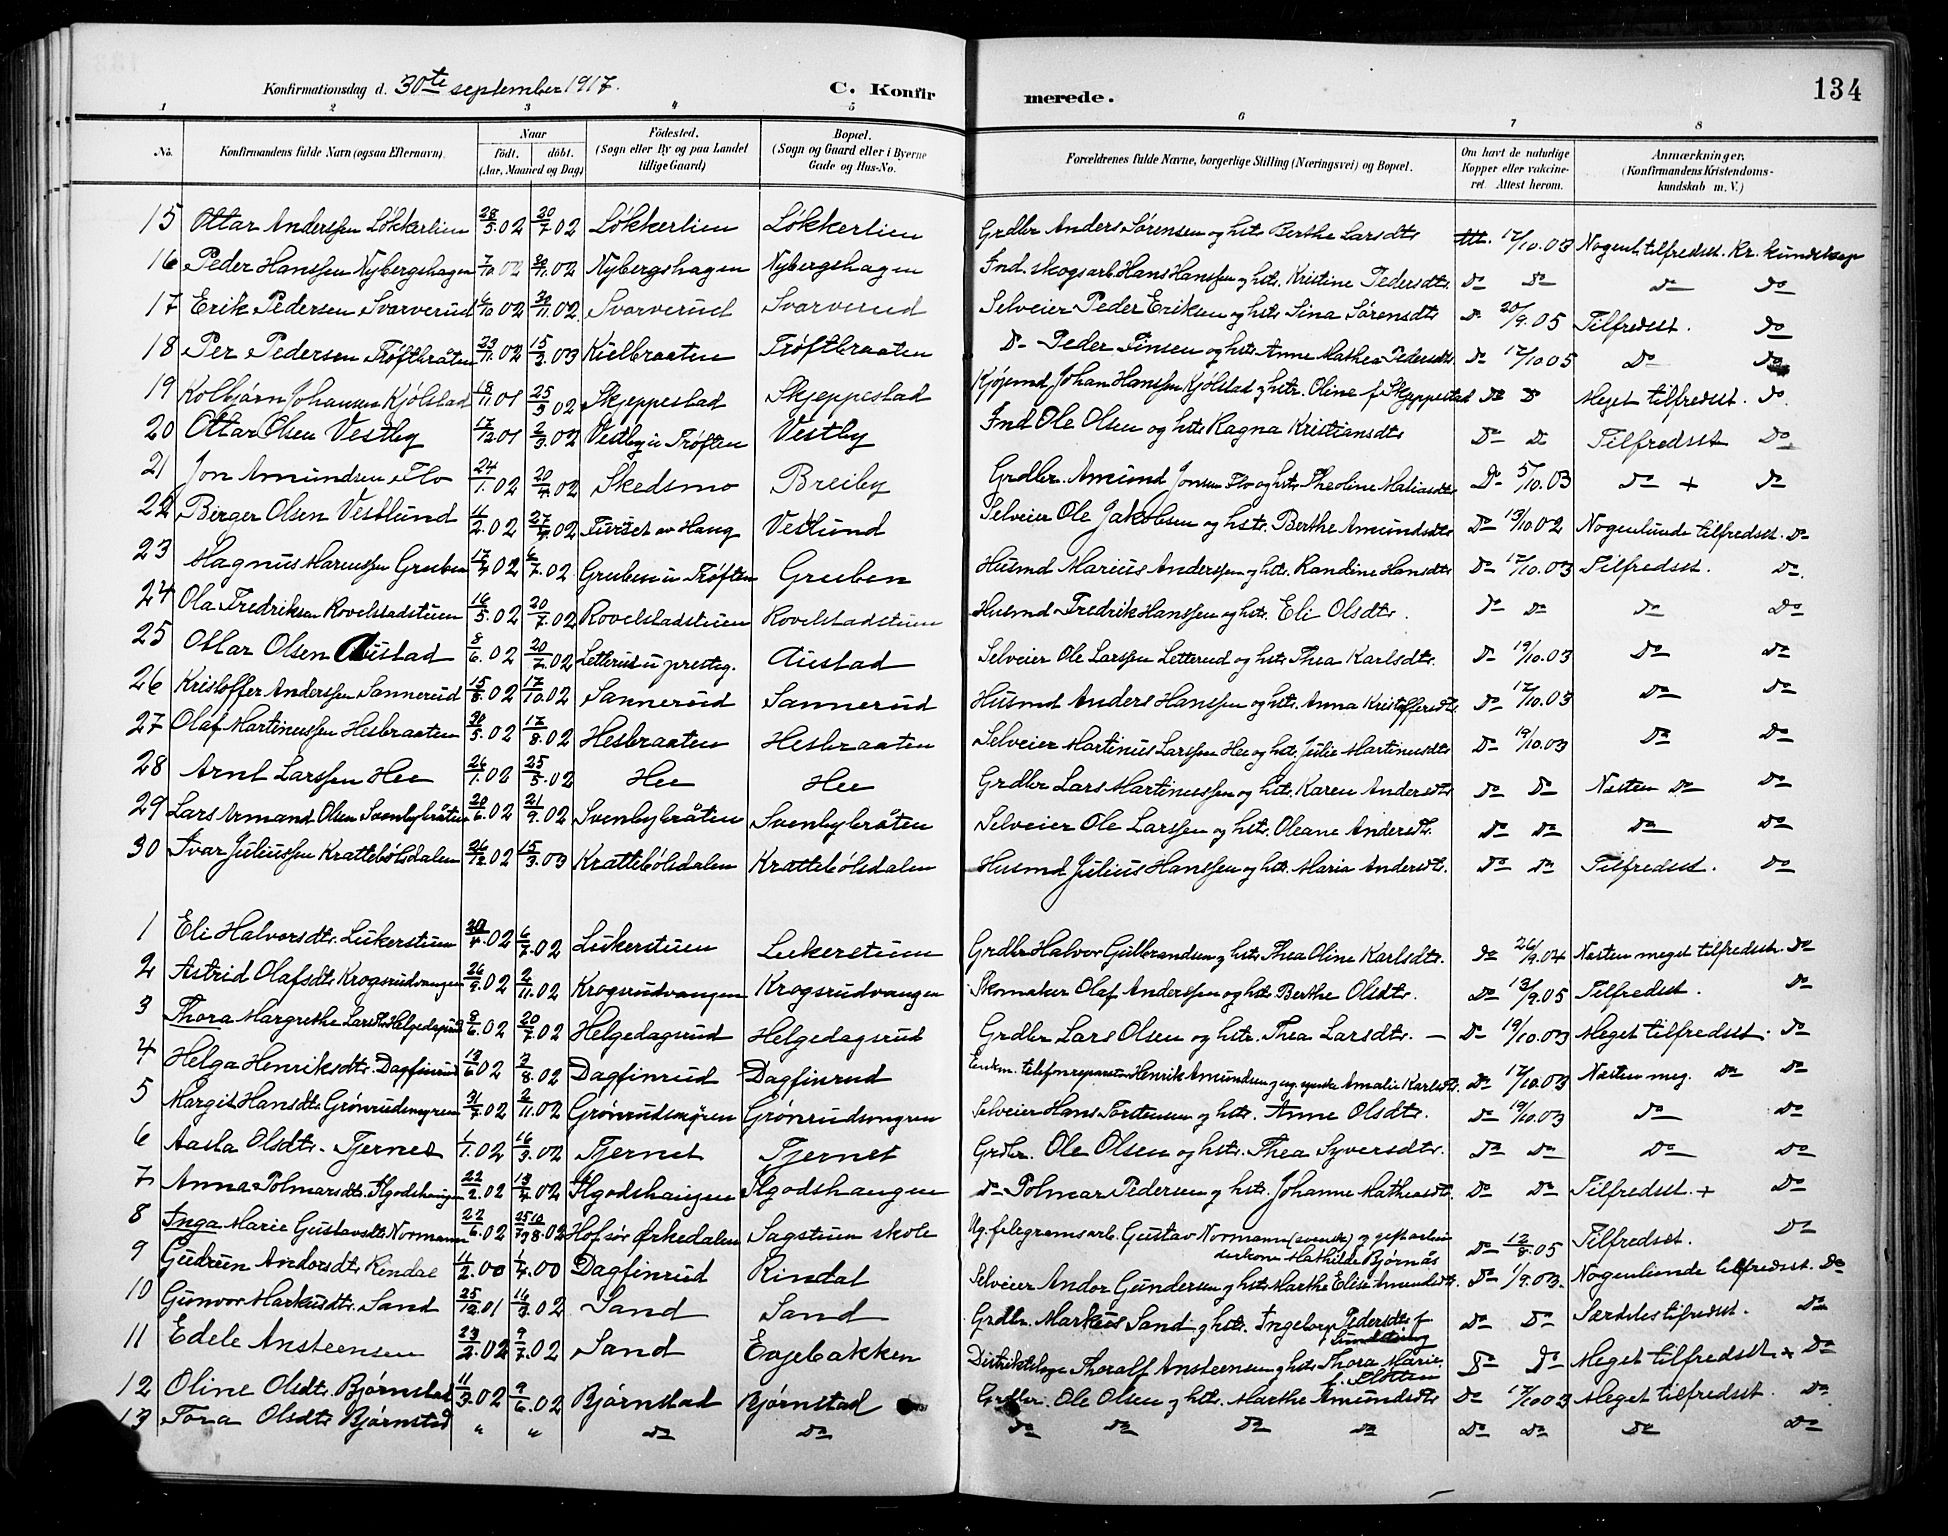 134
Konfirmationsdag d. 30te september 1917. C. Konfirmerede.
1 2 3 4 5 6 7 8
No. Konfirmandens fulde Navn (ogsaa Efternavn). Naar født. døbt. (Aar, Maaned og Dag) Fødested. (Sogn eller By og paa Landet tillige Gaard) Bopæl. (Sogn og Gaard eller i Byerne Gade og Hus-No. Forældrenes fulde Navne, borgerlige Stilling (Næringsvei) og Bopæl. Om havt de naturlige Kopper eller vakcineret. Attest herom. Anmærkninger. (Konfirmandens Kristendomskundskab m. V.)
15 Ottar Anderssen Løkkerlien 28/5.02 20/7.02 Løkkerlien Løkkerlien Grdbr Anders Sørensen og hstr Berthe Larsdtr Att. 17/10.03 Nogenl. tilfredsst. Kr. kundskap
16 Peder Hanssen Nybergshagen 7/10 02 30/11.02 Nybergshagen Nybergshagen Ind. skogsarb. Hans Hanssen og hstr. Kristine Pedersdtr Do Do Do Do
17 Erik Pedersen Svarverud 6/10 02 30/11.02 Svarverud Svarverud Selveier Peder Eriksen og hstr Sina Sørensdtr Do 20/9.05 Tilfredsst. Do
18 Per Pedersen Trøftbråten 23/11.02 15/3.03 Kielbraaten Trøftbraaten Do Peder Finsen og hstr Anne Mathea Pedersdtr Do 17/10 05 Do Do
19 Kolbjørn Johansen Kjølstad 18/11 01 25/3 02 Skjeppestad Skjeppestad Kjøpmd Johan Hanssen Kjølstad og hstr. Oline f. Skjeppestad Do Do Meget tilfredsst. Do
20 Ottar Olsen Vestby 17/12.01 2/3.02 Vestby u Trøften Vestby Ind Ole Olsen og hstr Ragna Kristiansdtr Do Do Tilfredsst Do
21 Jon Amundsen Flo 24/1.02 20/4.02 Skedsmo Breiby Grdbr. Amund Jonsen Flo og hstr Theoline Mathiasdtr Do 5/10.03 Do + Do
22 Birger Olsen Vestlund 11/2.02 27/4.02 Furset av Haug Vestlund Selveier Ole Jakobsen og hstr. Berthe Amundsdtr Do 13/10 02 Nogenlunde tilfredsst. Do
23 Magnus Mariussen Gruben 17/4 02 6/7.02 Gruben u Trøften Gruben Husmd Marius Anderssen og hstr. Randine Hansdtr Do 17/10.03 Tilfredsst. Do.
24 Ola Fredriksen Rovelstadstuen 16/5.02 20/7.02 Rovelstadstuen Rovelstadstuen Husmd Fredrik Hanssen og hstr. Eli Olsdtr. Do Do Do Do
25 Ottar Olsen Austad 8/6.02 20/7.02 Letterud u presteg. Austad Selveier Ole Larssen Letterud og hstr. Thea Karlsdtr. Do 19/10.03 Do Do
26 Kristoffer Anderssen Sannerud 15/8.02 17/10.02 Sannerud Sannerud Husmd Anders Hanssen og hstr. Anna Kristoffersdtr. Do 17/10.03 Do Do
27 Olaf Martinussen Hesbraaten 30/5.02 17/8.02 Hesbraaten Hesbraaten Selveier Martinus Larssen Hee og hstr. Julie Martinusdtr Do 19/10.03 Do Do
28 Arnt Larssen Hee 26/1.02 25/5.02 Hee Hee Grdbr Lars Martinussen og hstr. Karen Andersdtr Do Do Næsten Do Do
29 Lars Armand Olsen Svenbybråten 20/6.02 21/9.02 Svenbybråten Svenbybråten Selveier Ole Larssen og hstr. Oleane Andersdtr. Do Do Do Do
30 Ivar Juliussen Krattebølsdalen 26/12.02 15/3.03 Krattebølsdalen Krattebølsdalen Husmd Julius Hanssen og hstr. Maria Andersdtr. Do Do Tilfredsst. Do
1 Eli Halvorsdtr. Lukerstuen 20/4.02 6/7.02 Lukerstuen Lukerstuen Grdbr Halvor Gulbrandsen og hstr Thea Oline Karlsdtr. Do 26/9.04 Næsten meget tilfredsst. Do
2 Astrid Olafsdtr Krogsrudvangen 26/9.02 2/11.02 Krogsrudvangen Krogsrudvangen Skomaker Olaf Anderssen og hstr Berthe Olsdtr. Do 13/9.05 Tilfredsst. Do
3 Thora Margrethe Larsdtr Helgedagsrud 9/6.02 20/7.02 Helgedagsrud Helgedagsrud Grdbr Lars Olsen og hstr. Thea Larsdtr. — Do 19/10.03 Meget tilfredsst. Do
4 Helga Henriksdtr. Dagfinrud 13/6 02 3/8.02 Dagfinrud Dagfinrud Enkm. telefonreparatør Henrik Amundsen og ug. Amalie Karlsdtr. Do 17/10.03 Næsten meg. Do Do
5 Margit Hansdtr Grønrudmyren 31/7.02 2/11.02 Grønrudmyren Grønrudmyren Selveier Hans Torstensen og hstr. Anne Olsdtr. Do 19/10.03 Do Do
6 Aasta Olsdtr. Tjernet 1/1.02 16/3.02 Tjernet Tjernet Grdbr. Ole Olsen og hstr. Thea Syversdtr. Do Do Do Do
7 Anna Polmarsdtr. Algodshaugen 22/2.02 13/4.02 Algodshaugen Algodshaugen Do Polmar Pedersen og hstr. Johanne Matheasdtr. Do Do Tilfredsst. + Do
8 Inga Marie Gustavsdtr Normann 22/6.02 Hof sør Ørkedalen Sagstuen skole Ug. Gustav Normann (svensk) og Mathilde Bjørnås Do 12/8.05 Tilfredsst. Do
9 Gudrun Andorsdtr Rindal 11/2.00 1/4.00 Dagfinrud Rindal Selveier Andor Gundersen og hstr Marthe Elise Amundsdtr. Do 1/9.03. Nogenlunde tilfredsst. Do
10 Gunvor Markusdtr. Sand 25/12.01 16/3.02 Sand Sand Grdbr. Markus Sand og hstr. Ingeborg Pedersdtr f. Do Do Særdeles tilfredsst. Do
11 Edele Ansteensen 23/2.02 9/7.02 Sand Evjebakken Distriktslæge Thoralf Ansteensen og hstr Thora Marie f. Platou Do Do Meget tilfredsst. + Do
12 Oline Olsdtr. Bjørnstad 11/3.02 9/6.02 Bjørnstad Bjørnstad Grdbr. Ole Olsen og hstr. Marthe Amundsdtr Do 17/10 03 Meget tilfredsst. Do
13 Tora Olsdtr Bjørnstad " " Do Do Do Do Do Do Do Do Do Do